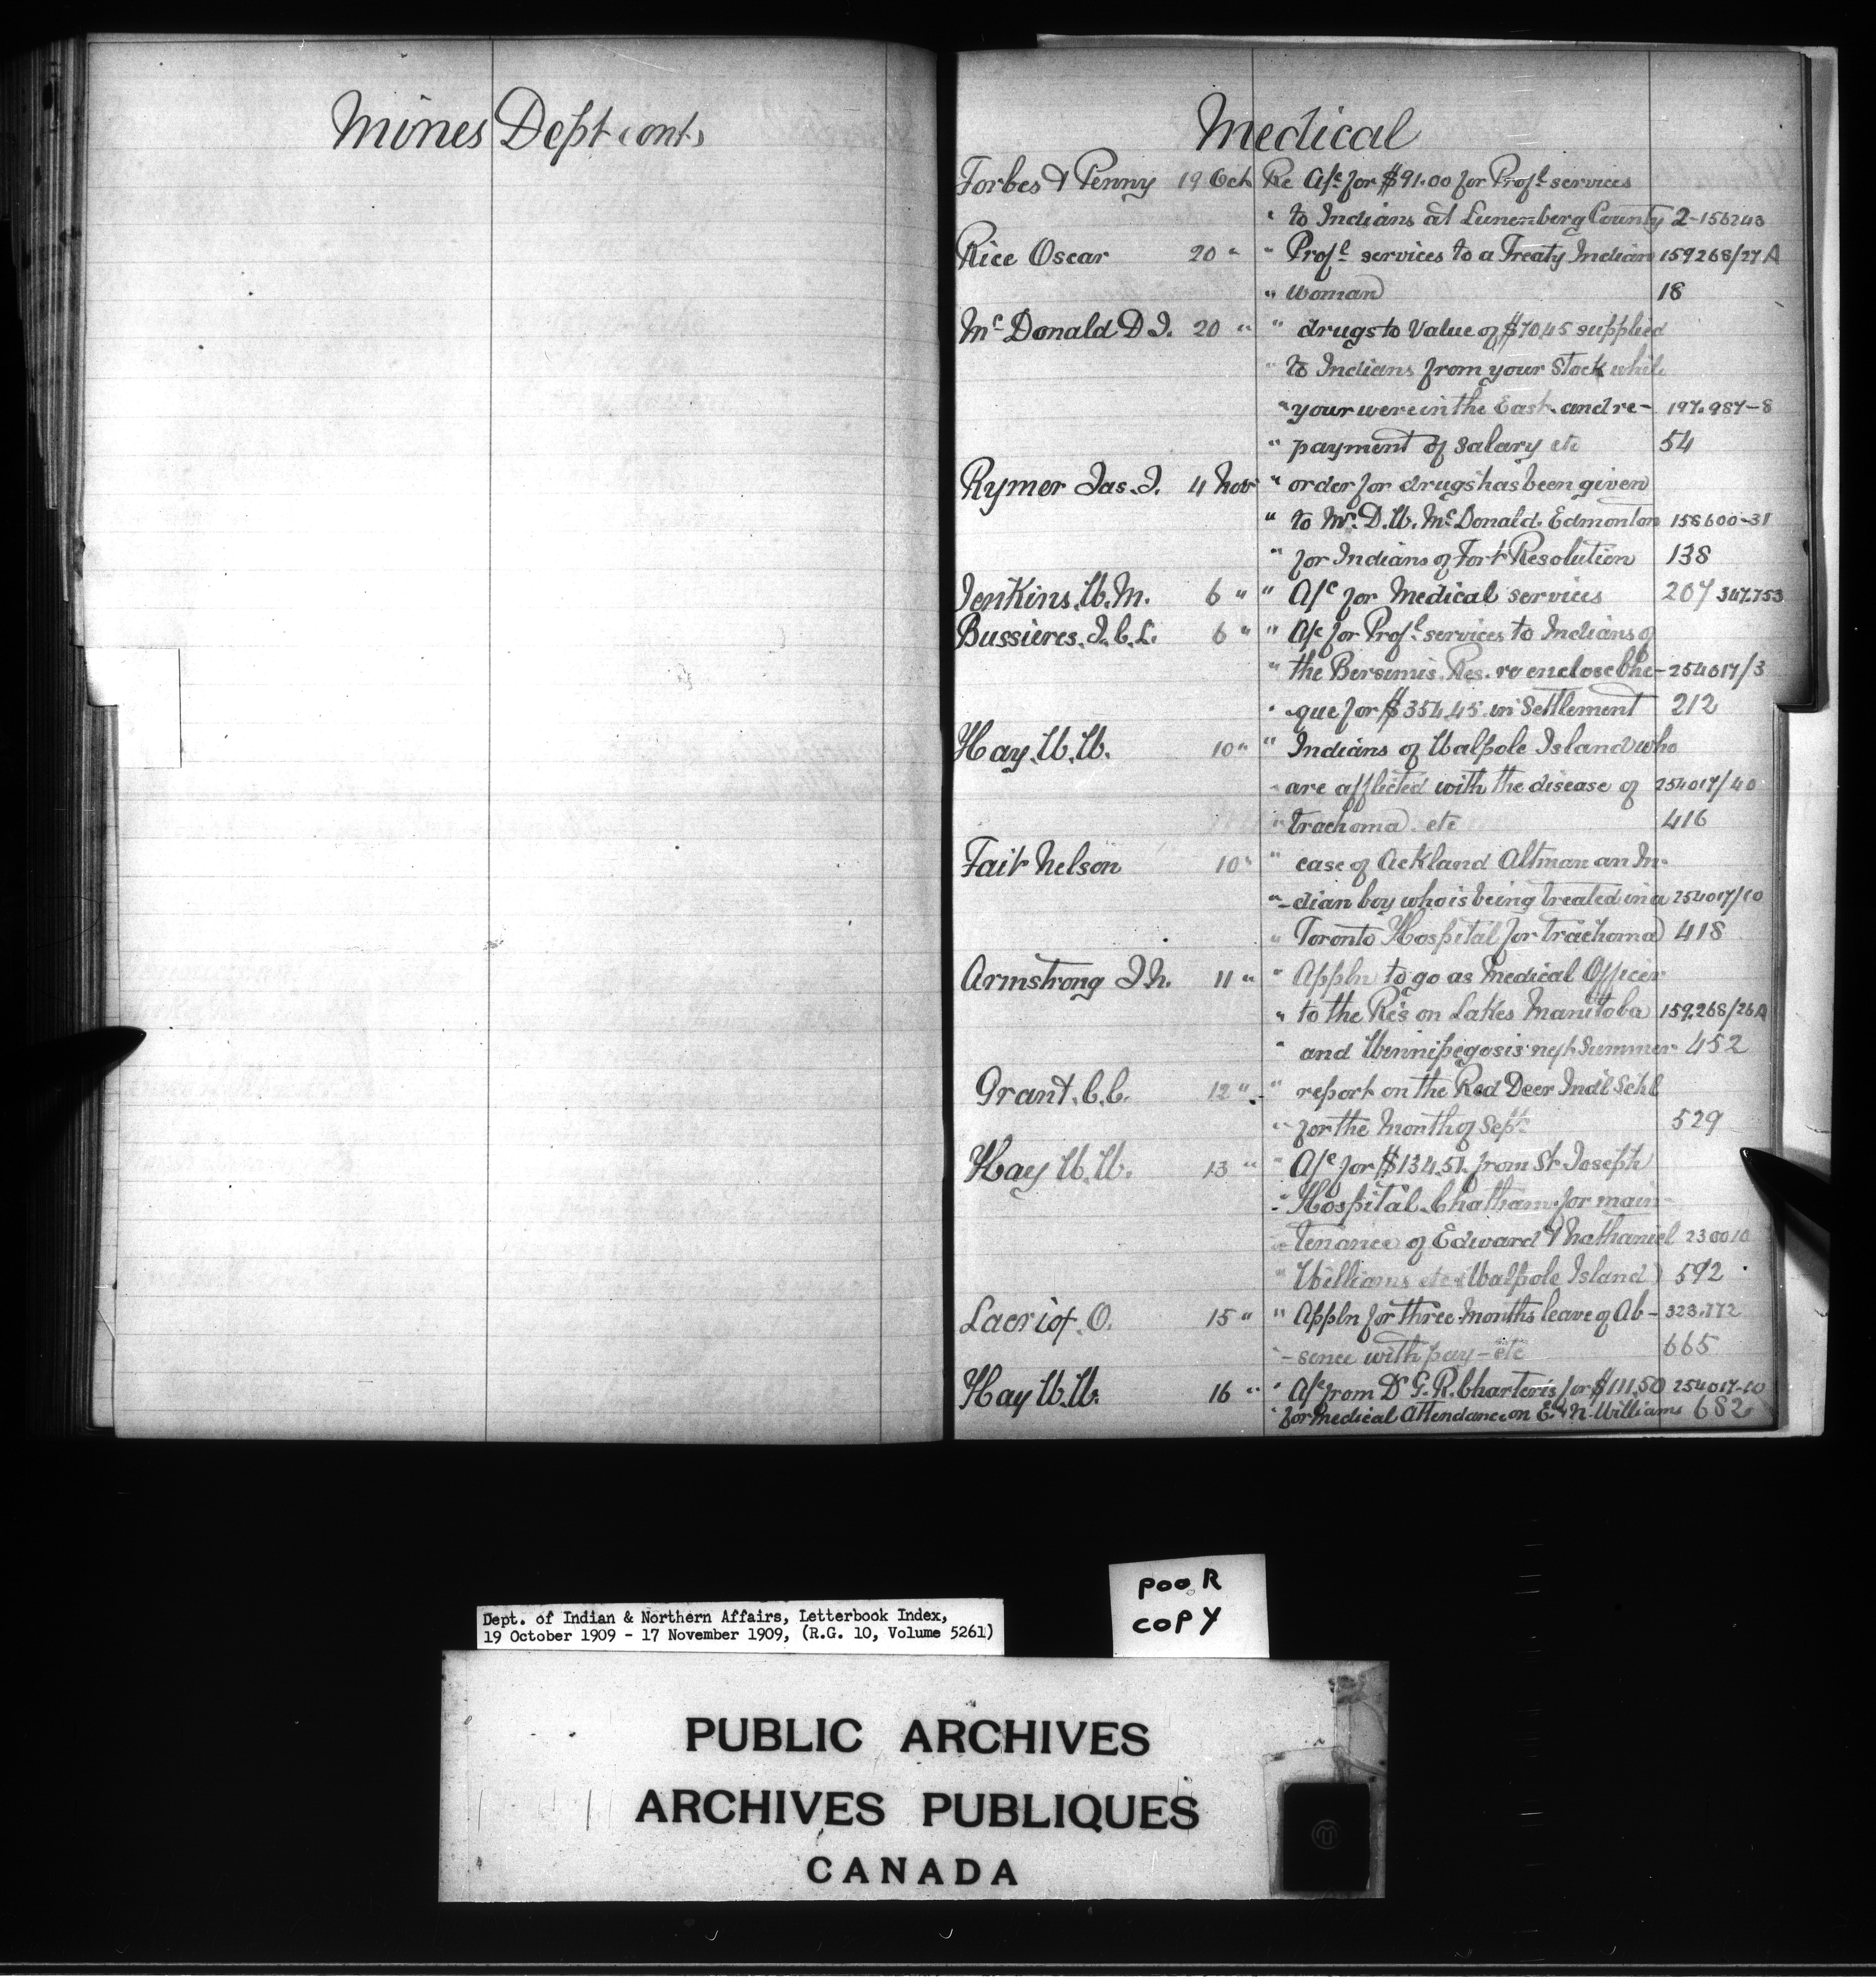 Mines Dept cont.
Medical
Forbes & Penny 19 Oct Re A/c for $91.00 for Prof.l services
" to Indians at Lunenberg County 2-156243
Rice Oscar 20 " " Prof.l services to a Treaty Indian 159268/27A
" woman 18
McDonald D J. 20 " " drugs to Value of $70.45 supplied
" to Indians from your Stock while
" your were in the East. and re- 197.987-8
" payment of Salary etc 54
Rymer Jas. J. 4 Nov " order for drugs has been given
" to Mr. D.W. McDonald. Edmonton 158600-31
" for Indians of Fort Resolution 138
Jenkins. W. M. 6 " " A/c for Medical services 207 347.753
Bussieres. J. C. L. 6 " " A/c for Prof.l services to Indians of
" the Bersimis. Res. re enclose Che- 254017/3
" que for $354.45 in Settlement 212
Hay. W. W. 10 " " Indians of Walpole Island who
" are afflicted with the disease of 254017/40
" trachoma. etc 416
Tait Nelson 10 " " case of Ackland Altman an In-
" -dian boy who is being treated in a 254017/10
" Toronto Hospital for trachoma 418
Armstrong J. N. 11 " " Appln to go as Medical Officer
" to the Re's on Lakes Manitoba 159.268/26A
" and Winnipegosis next Summer 452
Grant. C. C. 12 " " report on the Red Deer Ind'l Schl
" for the Month of Sept. 529
Hay W. W. 13 " " A/c for $134.51. from St Joseph
" Hospital. Chatham. for main-
" tenance of Edward & Nathaniel 230010
" Williams etc (Walpole Island) 592
O. 15 " " Appln for three Months leave of Ab- 323.772
" -sence with pay - etc 665
Hay W. W. 16 " " A/c from Dr G. R. Charteris for $111.50 254017-10
" for Medical Attendance on E. & N. Williams 682
POOR
COPY
Dept. of Indian & Northern Affairs, Letterbook Index,
19 October 1909 - 17 November 1909, (R.G. 10, Volume 5261)
PUBLIC ARCHIVES
ARCHIVES PUBLIQUES
CANADA